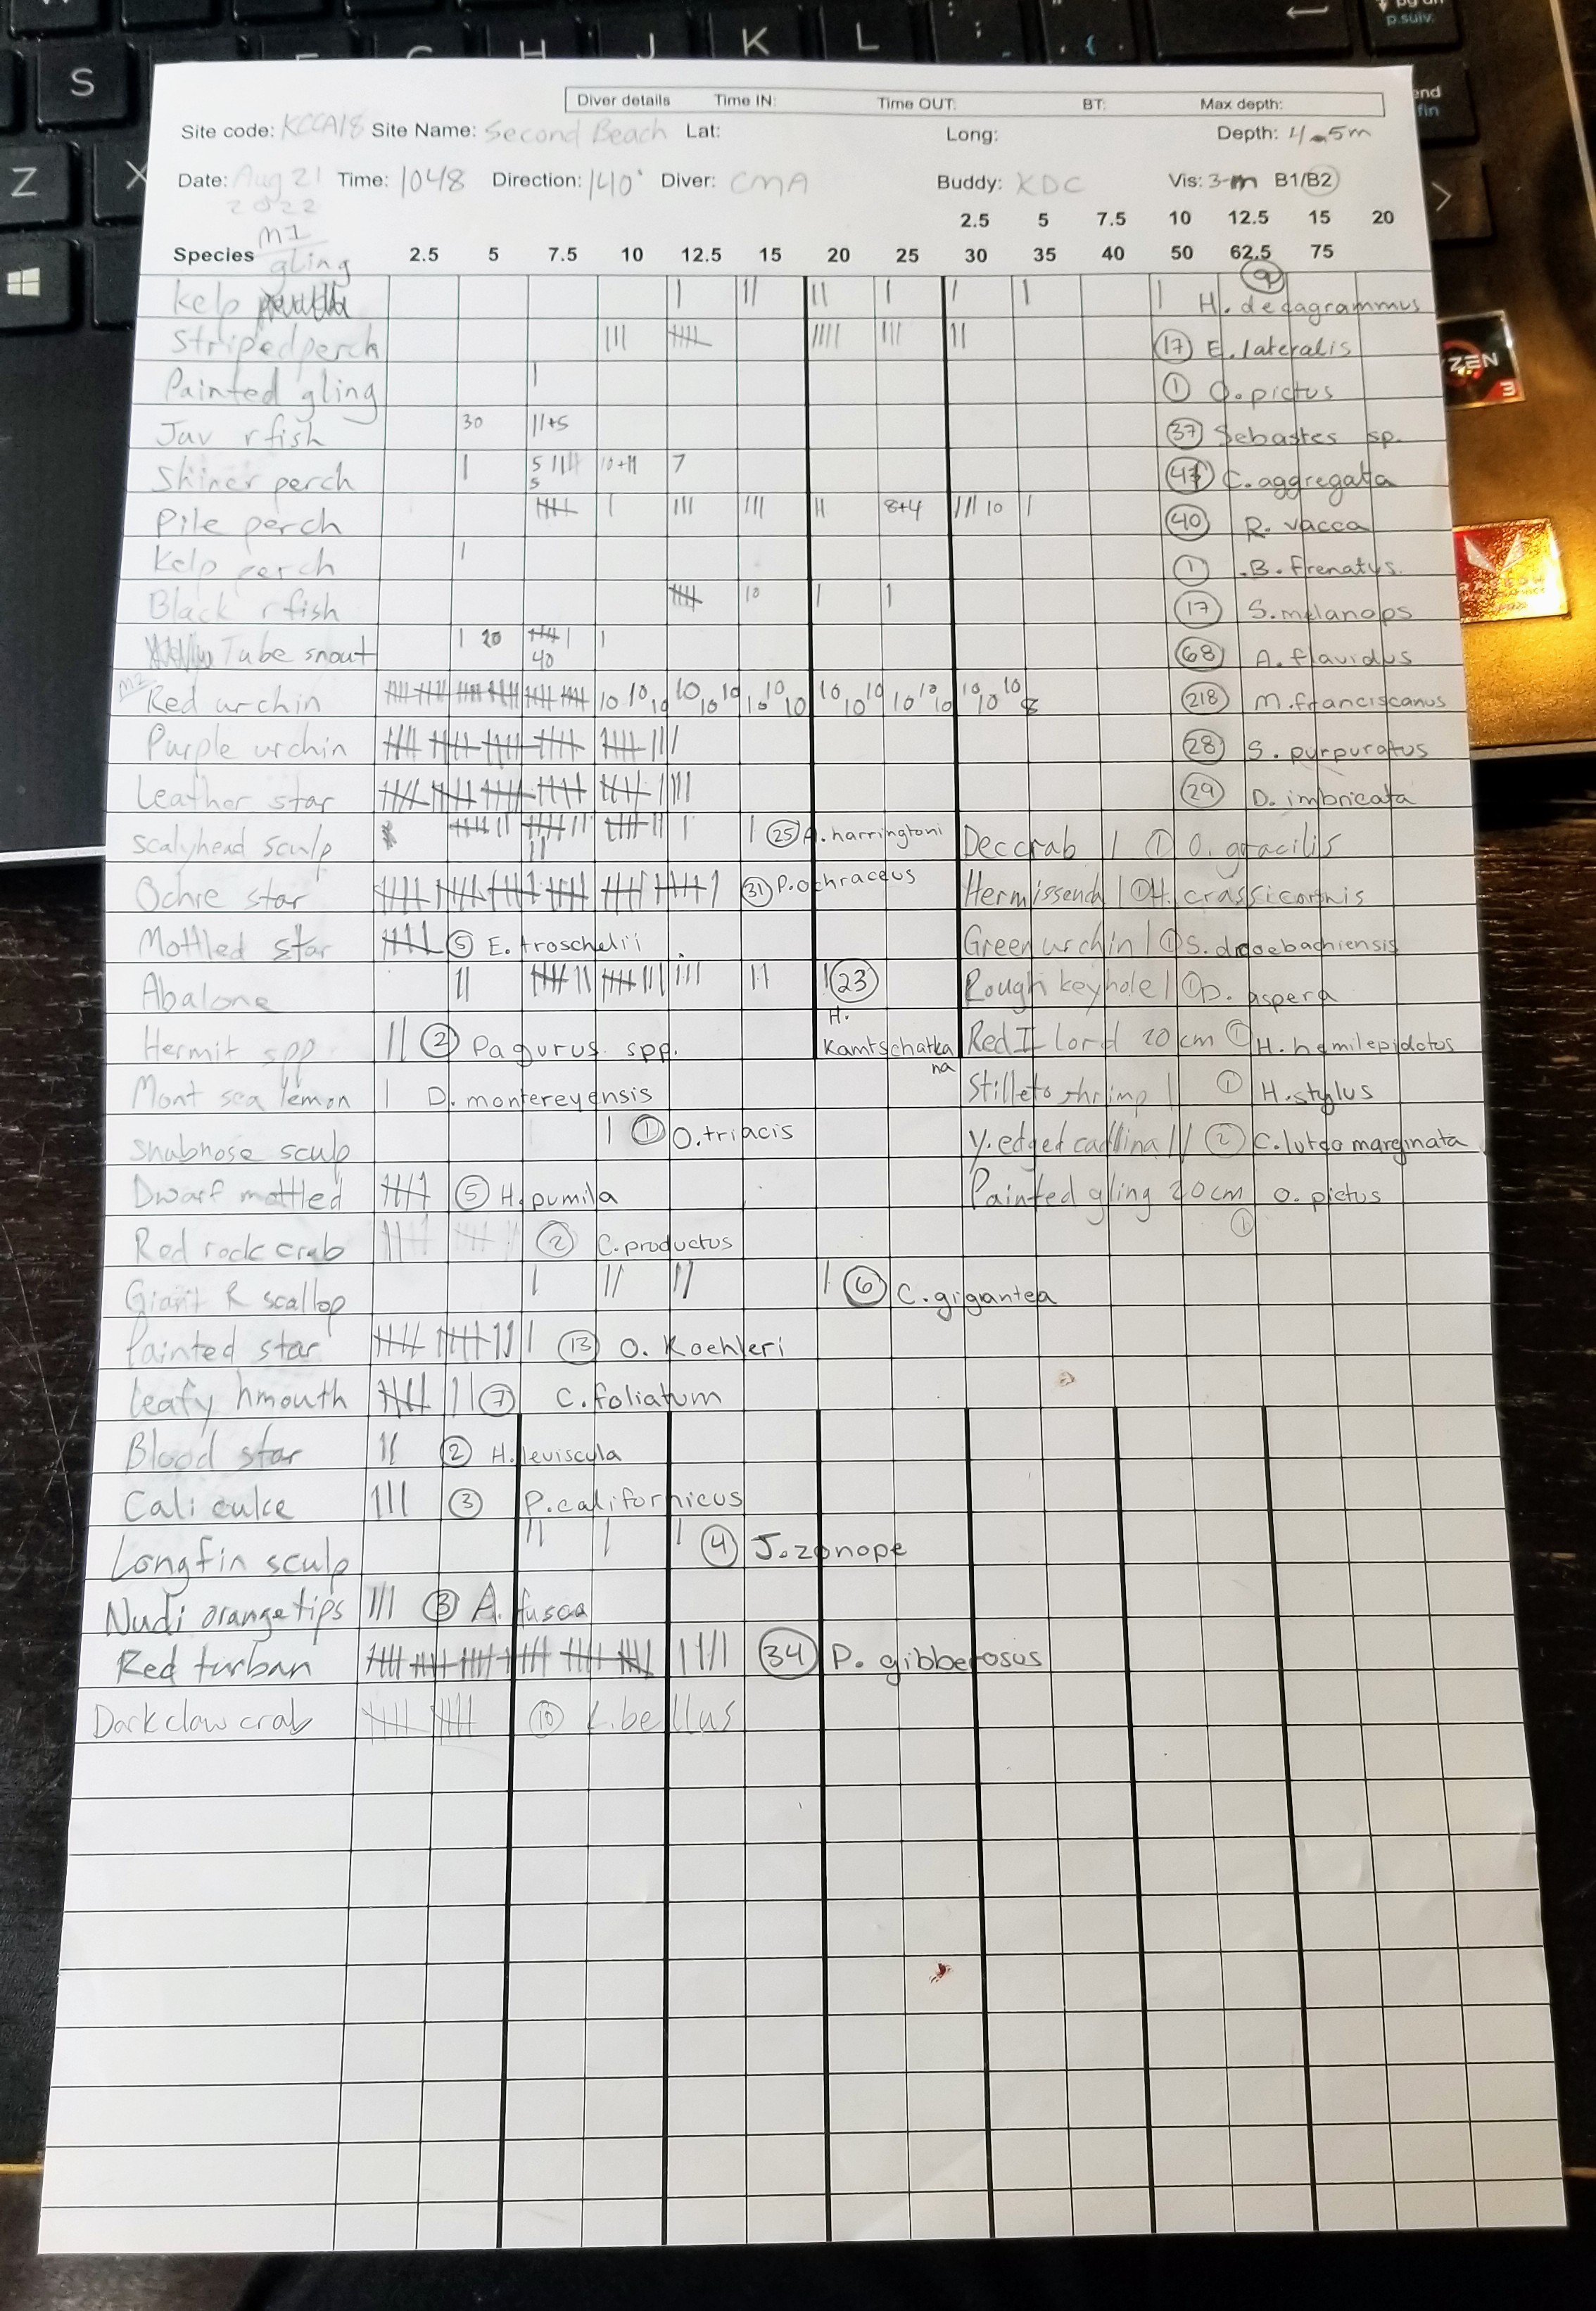 Diver details Time IN: Time OUT: BT: Max depth:
Site code: KCCA18 Site Name: Second Beach Lat: Long: Depth: 4.5m
Date: Aug 21 2022 Time: 1048 Direction: 140° Diver: CMA Buddy: KDC Vis: 3-m B1/B2
2.5 5 7.5 10 12.5 15 20
Species M1 2.5 5 7.5 10 12.5 15 20 25 30 35 40 50 62.5 75
Kelp gling | || || | | | | 9 H. decagrammus
Striped perch ||| |||| |||| ||| || 17 E. lateralis
Painted gling | 1 O. pictus
Juv rfish 30 ||+5 37 Sebastes sp.
Shiner perch | 5 |||| 5 10+11 7 C. aggregata
Pile perch |||| | ||| ||| || 8+4 ||| 10 | 40 R. vacca
Kelp perch | 1 B. frenatus
Black rfish |||| 10 | | 17 S. melanops
Tube snout | 20 |||| | 40 | 68 A. flavidus
M2
Red urchin 10 10 10 10 10 10 10 10 10 10 10 10 10 10 10 10 10 10 8 218 M. franciscanus
Purple urchin 28 S. purpuratus
Leather star 29 D. imbricata
Scalyhead sculp 25 A. harringtoni Dec crab | 1 O. gracilis
Ochre star 31 P. ochraceus Hermissenda | 1 H. crassicornis
Mottled star 5 E. troschelii Green urchin | 1 S. droebachiensis
Abalone || ||| || | 23 H. Kamtschatkana Rough keyhole | 1 D. aspera
Hermit spp || 2 Pagurus spp. Red I lord 20cm 1 H. hemilepidotus
Mont sea lemon | D. montereyensis Stilleto shrimp | 1 H. stylus
Snubnose sculp | 1 O. triacis Y. edged cadlina || 2 C. luteomarginata
Dwarf mottled 5 H. pumila Painted gling 20cm 1 O. pictus
Red rock crab 2 C. productus
Giant R scallop | || || | 6 C. gigantea
Painted star 13 O. Koehleri
Leafy hmouth 7 C. foliatum
Blood star || 2 H. leviscula
Cali cuke ||| 3 P. californicus
Longfin sculp || | | 4 J. zonope
Nudi orange tips ||| 3 A. fusca
Red turban |||| 34 P. gibberosus
Dark claw crab 10 L. bellus